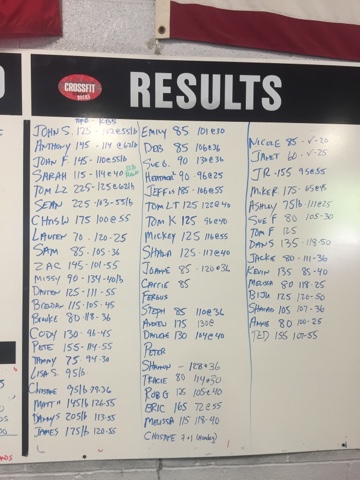 CROSSFIT
RESULTS
JOHN S. 125 - 102@55lb
ANTHONY 145 - 114 @62lb
JOHN F. 145 - 110@55lb
SARAH 115 - 114@40
TOM LZ 225 - 125@62lb
SEAN 225 - 103-55lb
CHRIS W 175 100@55
LAUREN 70 - 120-25
SAM 85 - 105-36
ZAC 145 - 101-55
MISSY 90 - 134-40lb
DAMIEN 125 - 111-55
BRENDAN 115 - 105-45
BROOKE 80 118-36
CODY 130 - 96-45
PETE 155 - 114-55
TAMMY 75 94-30
LISA S. 95lb
CHRISTINE 95lb 79-36
MATT H 145lb 126-55
DANNYS 205lb 113-55
JAMES 175lb 120-55
EMILY 85 101@30
DEB 85 106@36
SUE G. 90 130@36
HEATHER 90 96@25
JEFF 185 - 106@55
TOM LT 125 122@40
TOM K 125 96@40
MICKEY 125 116@55
SHAUNA 125 - 117@40
JOANNE 85 - 120@36
CARRIE 85
FERGUS
STEPH 85 110@36
ANDREW 175 130@
DARLENE 130 104@40
PETER
SHANNON - 128@36
TRACIE 80 114@30
ROB G 125 105@40
ERIC 165 72@55
MELISSA 115 118-40
CHRISTINE 7+1 (Monday)
NICOLE 85 - √ - 20
JANET 60 - √ - 25
JR - 155 95@55
MIKER 175 - 65@45
ASHLEY 75lb 111@25
SUE F 80 105-30
TOM F 125
DANS 135 - 118-50
JACKIE 80 - 111-36
KEVIN 135 85-40
MELISSA 80 118-25
BIJU 125 120-50
SHARAD 105 107-36
ANNIE 80 100-25
TED 155 107-55